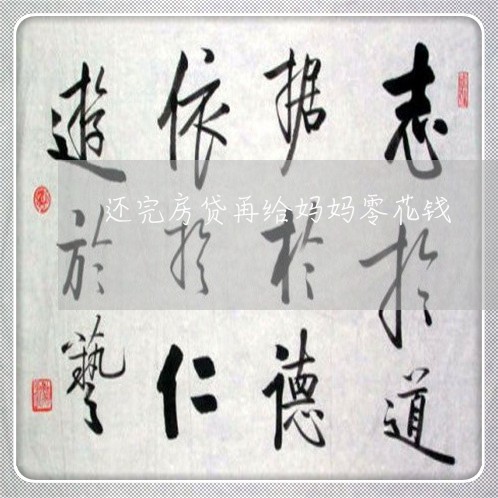 志於道
据於德
依於仁
遊於藝
还完房贷再给妈妈零花钱